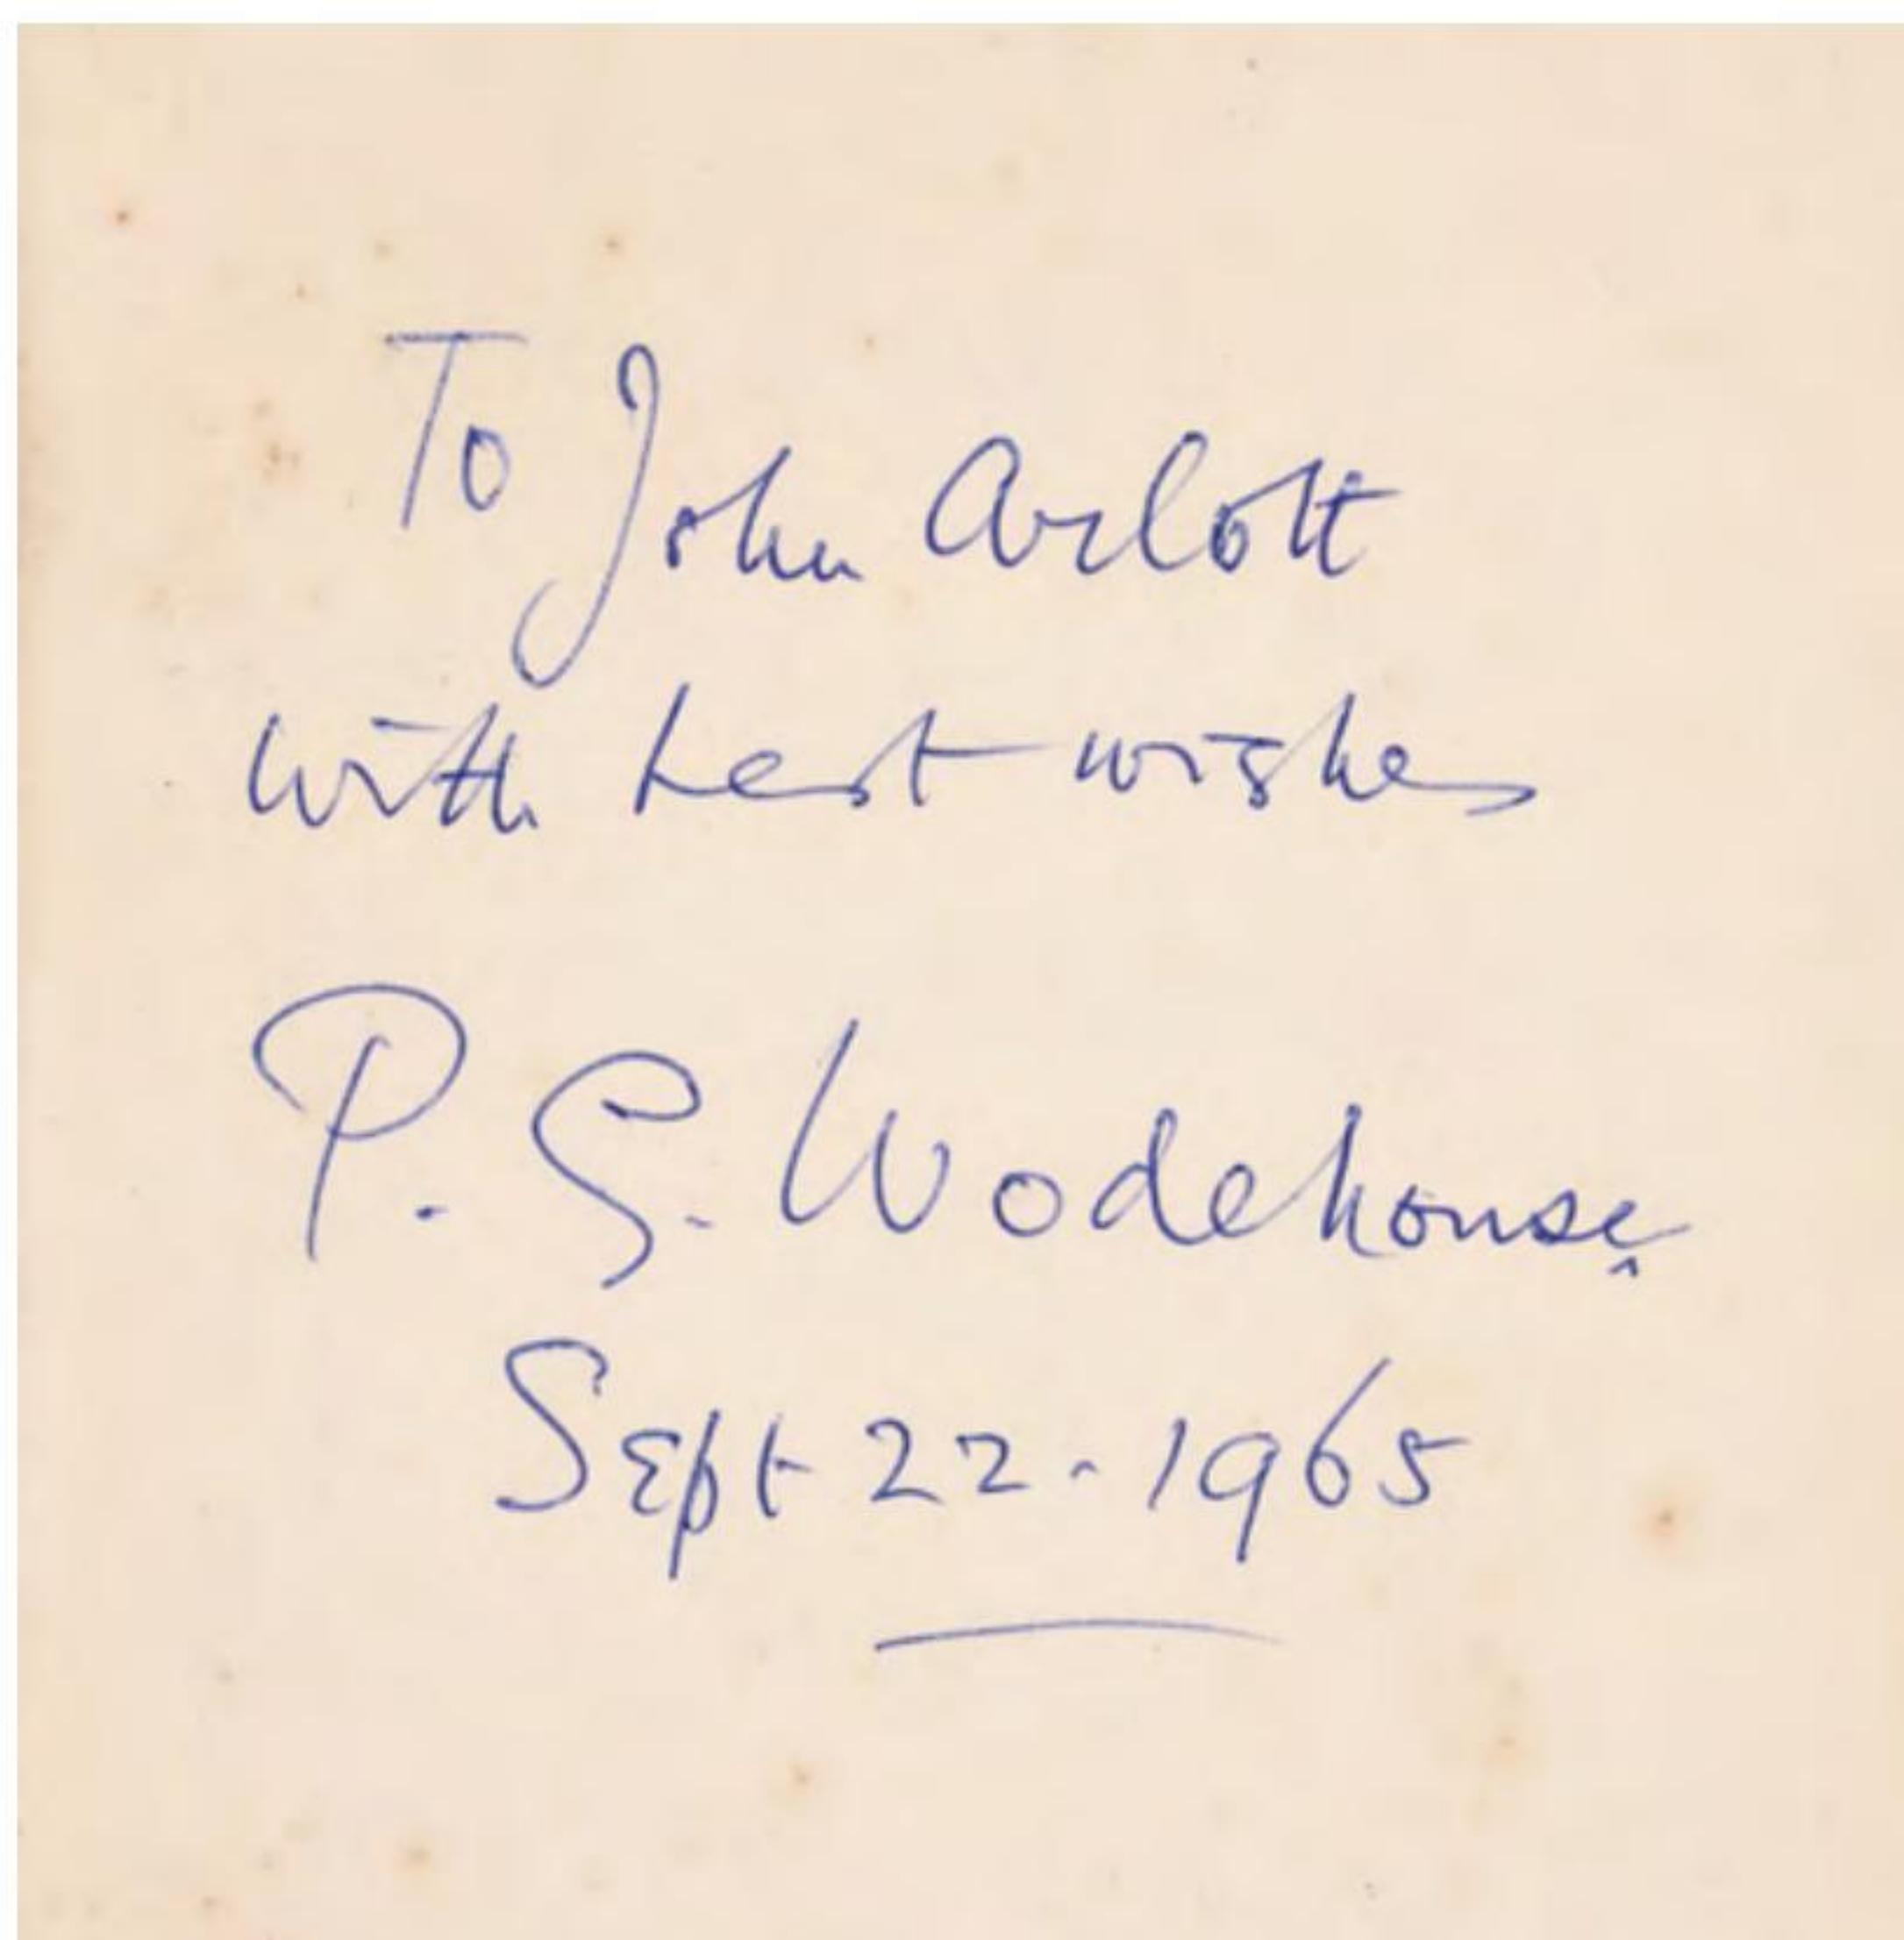 To John Arlott
with best wishes
P. G. Wodehouse.
Sept 22. 1965